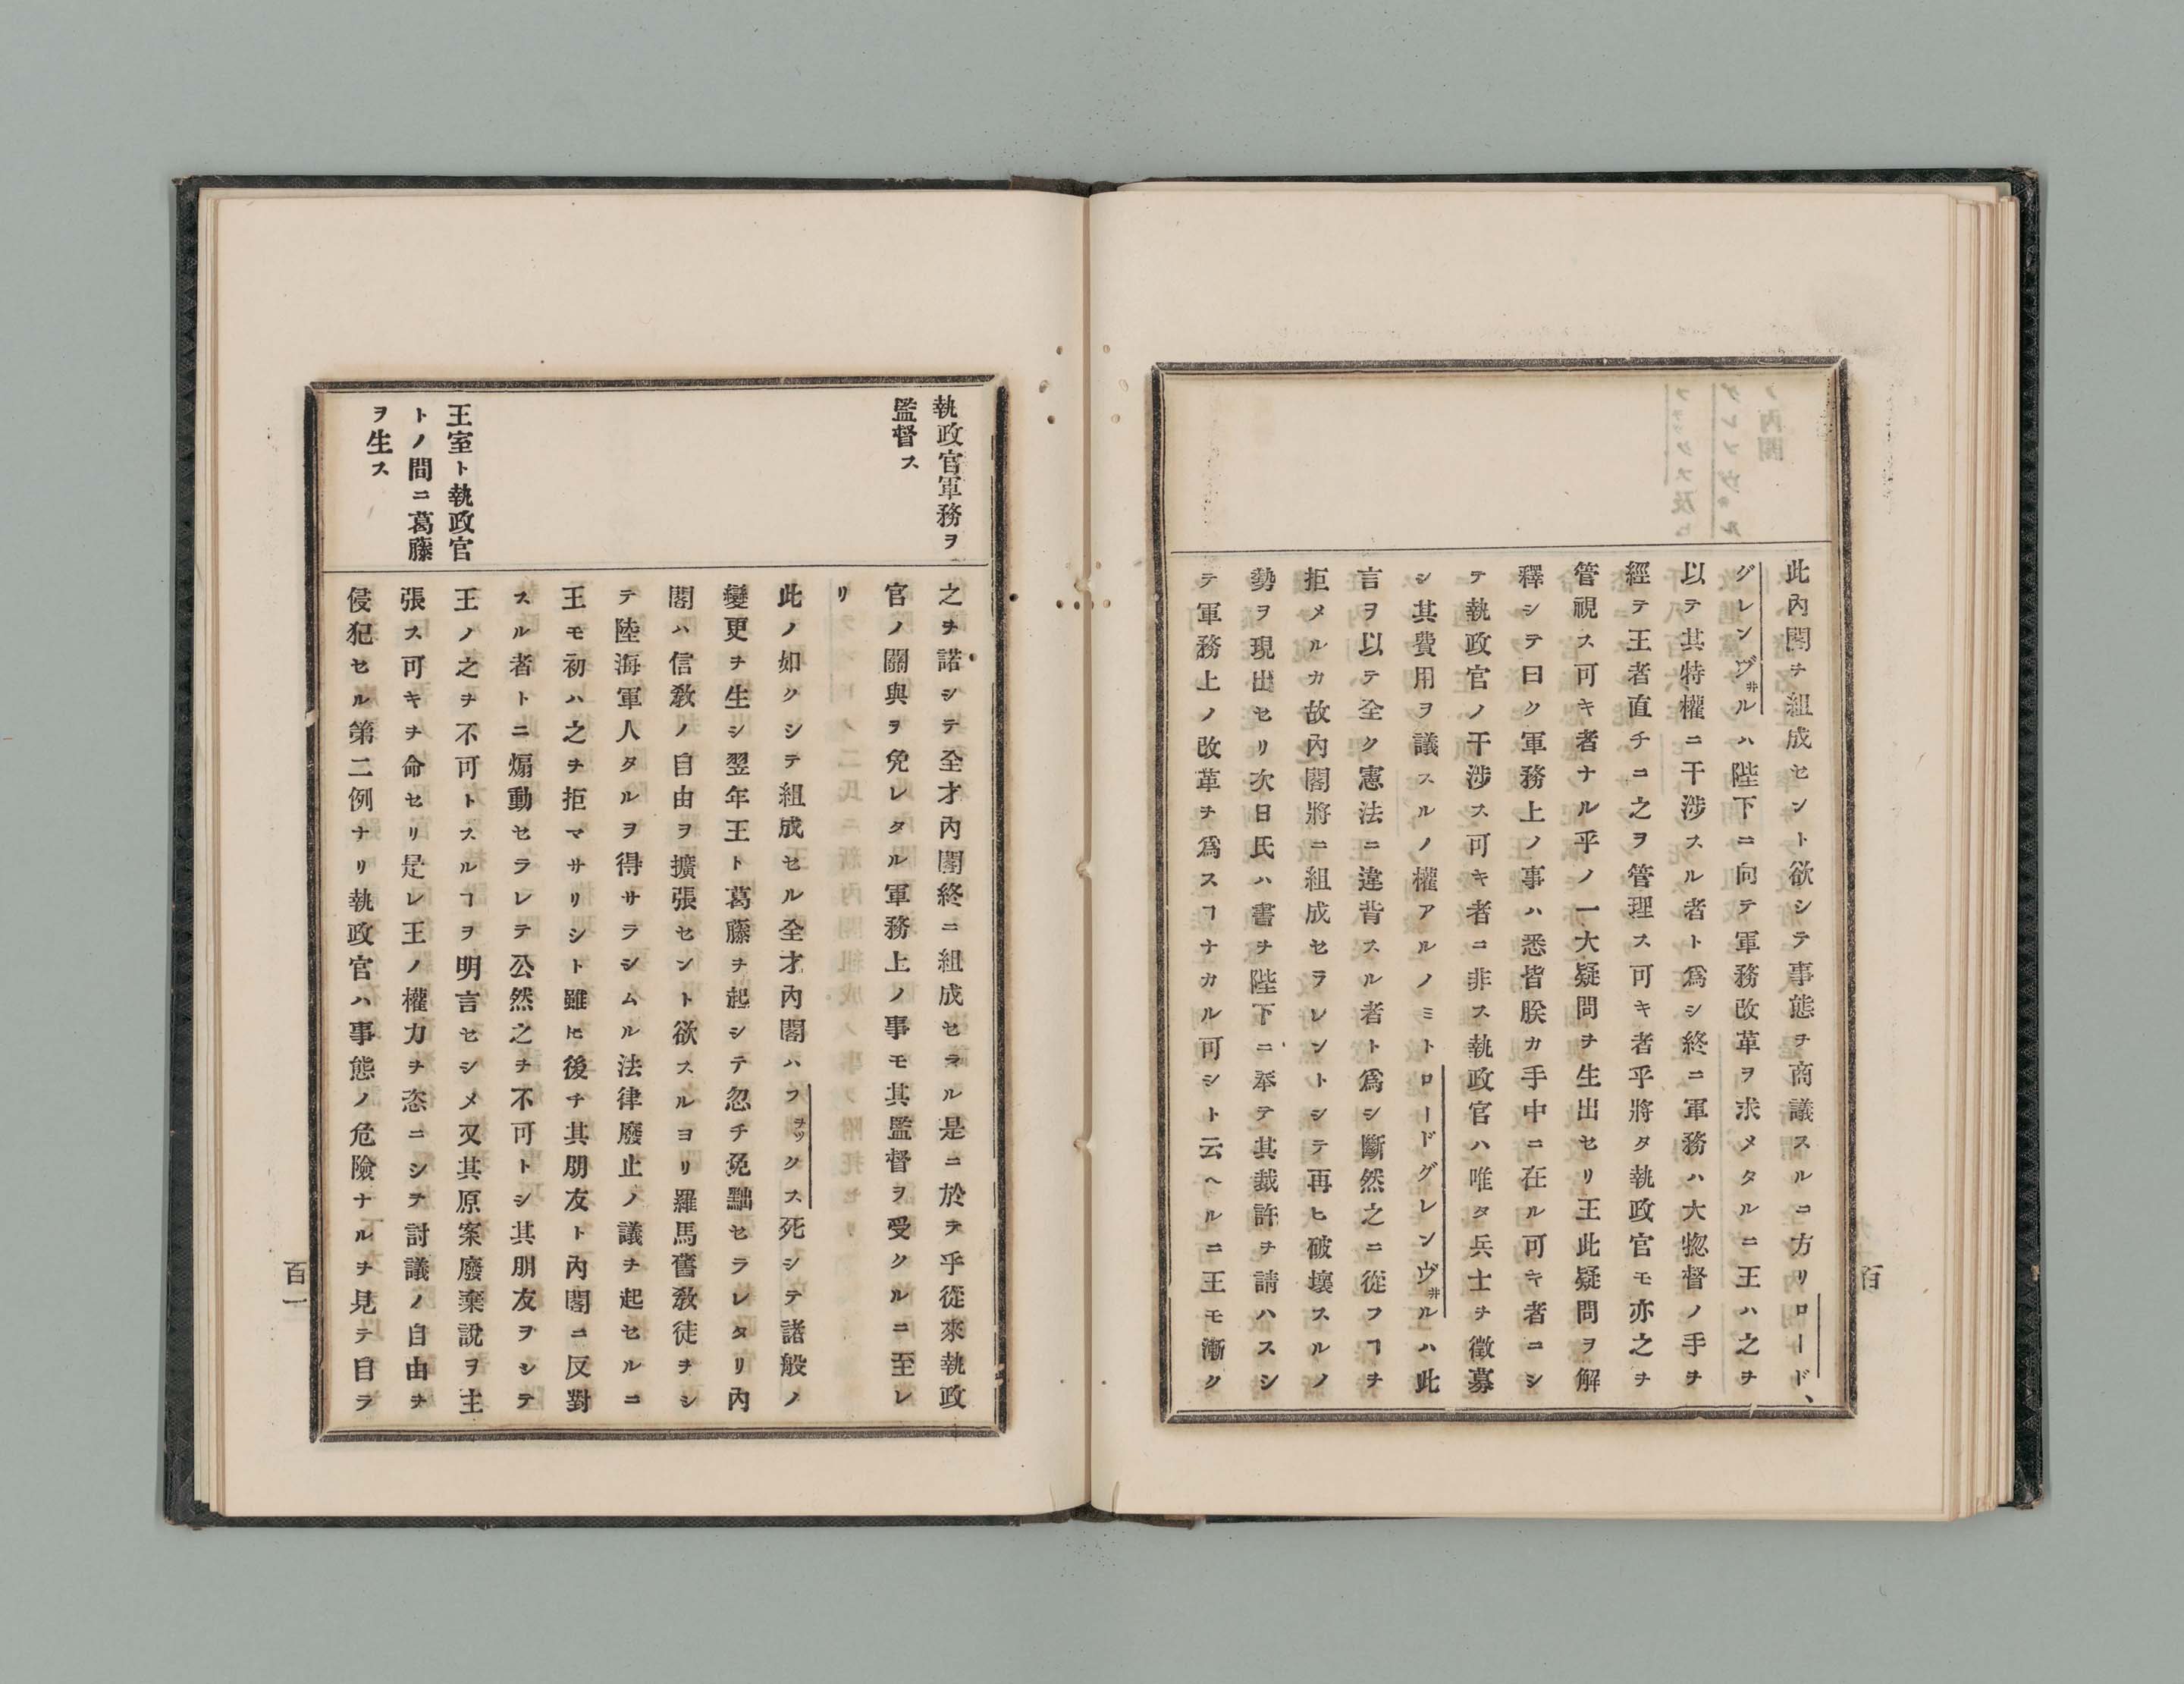 此內閣ヲ組成セント欲シテ事態ヲ商議スルニ方リロード、
グレンヴ井ルハ陛下ニ向テ軍務改革ヲ求メタルニ王ハ之ヲ
以テ其特權ニ干涉スル者ト爲シ終ニ軍務ハ大惣督ノ手ヲ
經テ王者直チニ之ヲ管理ス可キ者乎將タ執政官モ亦之ヲ
管視ス可キ者ナル乎ノ一大疑問ヲ生出セリ王此疑問ヲ解
釋シテ曰ク軍務上ノ事ハ悉皆朕カ手中ニ在ル可キ者ニシ
テ執政官ノ干涉ス可キ者ニ非ス執政官ハ唯タ兵士ヲ徵募
シ其費用ヲ議スルノ權アルノミトロードグレンヴ井ルハ此
言ヲ以テ全ク憲法ニ違背スル者ト爲シ斷然之ニ從フヿヲ
拒メルカ故內閣將ニ組成セラレントシテ再ヒ破壞スルノ
勢ヲ現出セリ次日氏ハ書ヲ陛下ニ奉テ其裁許ヲ請ハスシ
テ軍務上ノ改革ヲ爲スヿナカル可シト云ヘルニ王モ漸ク
百
執政官軍務ヲ
監督ス
王室ト執政官
トノ間ニ葛藤
ヲ生ス
之ヲ諾シテ全才內閣終ニ組成セラル是ニ於テ乎從來執政
官ノ關與ヲ免レタル軍務上ノ事モ其監督ヲ受クルニ至レ
リ
此ノ如クシテ組成セル全才內閣ハフヲックス死シテ諸般ノ
變更ヲ生シ翌年王ト葛藤ヲ起シテ忽チ免黜セラレタリ內
閣ハ信敎ノ自由ヲ擴張セント欲スルヨリ羅馬舊敎徒ヲシ
テ陸海軍人タルヲ得サラシムル法律廢止ノ議ヲ起セルニ
王モ初ハ之ヲ拒マサリシト雖𪜈後チ其朋友ト內閣ニ反對
スル者トニ煽動セラレテ公然之ヲ不可トシ其朋友ヲシテ
王ノ之ヲ不可トスルヿヲ明言セシメ又其原案廢棄說ヲ主
張ス可キヲ命セリ是レ王ノ權力ヲ恣ニシテ討議ノ自由ヲ
侵犯セル第二例ナリ執政官ハ事態ノ危險ナルヲ見テ自ラ
百一